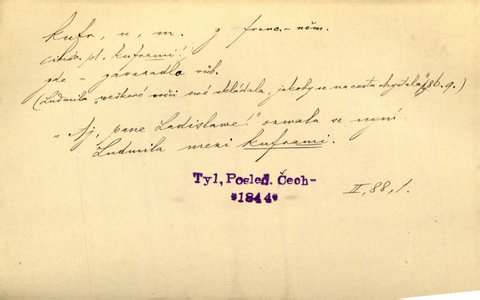 kufr, u, m. z franc.-něm.
kuframi!
gde – zavazadlo
(Ludmila "veškeré věci své skládala, jakoby se na cestu chystala" 86.9.)
„Aj, pane Ladislave!" ozvala se nyní
Ludmila mezi kuframi.
Tyl, Posled. Čech-
*1844*
II, 88, 1.